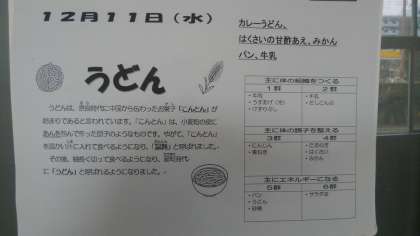 12月11日（水）
カレーうどん、
はくさいの甘酢あえ、みかん
パン、牛乳
うどん
うどんは、奈良時代に中国から伝わったお菓子「こんとん」が
始まりであると言われています。「こんとん」は、小麦粉の皮に
あんを包んで作った団子のようなものです。やがて、「こんとん」
を温かい汁に入れて食べるようになり、「
」と呼ばれました。
その後、細長く切って食べるようになり、室町時代
に「うどん」と呼ばれるようになりました。
主に体の組織をつくる
1群 2群
・牛乳
主に体の調子を整える
3群 4群
・にんじん ・たまねぎ
・はくさい
・みかん
主にエネルギーになる
5群 6群
・パン ・サラダ油
・うどん
・砂糖